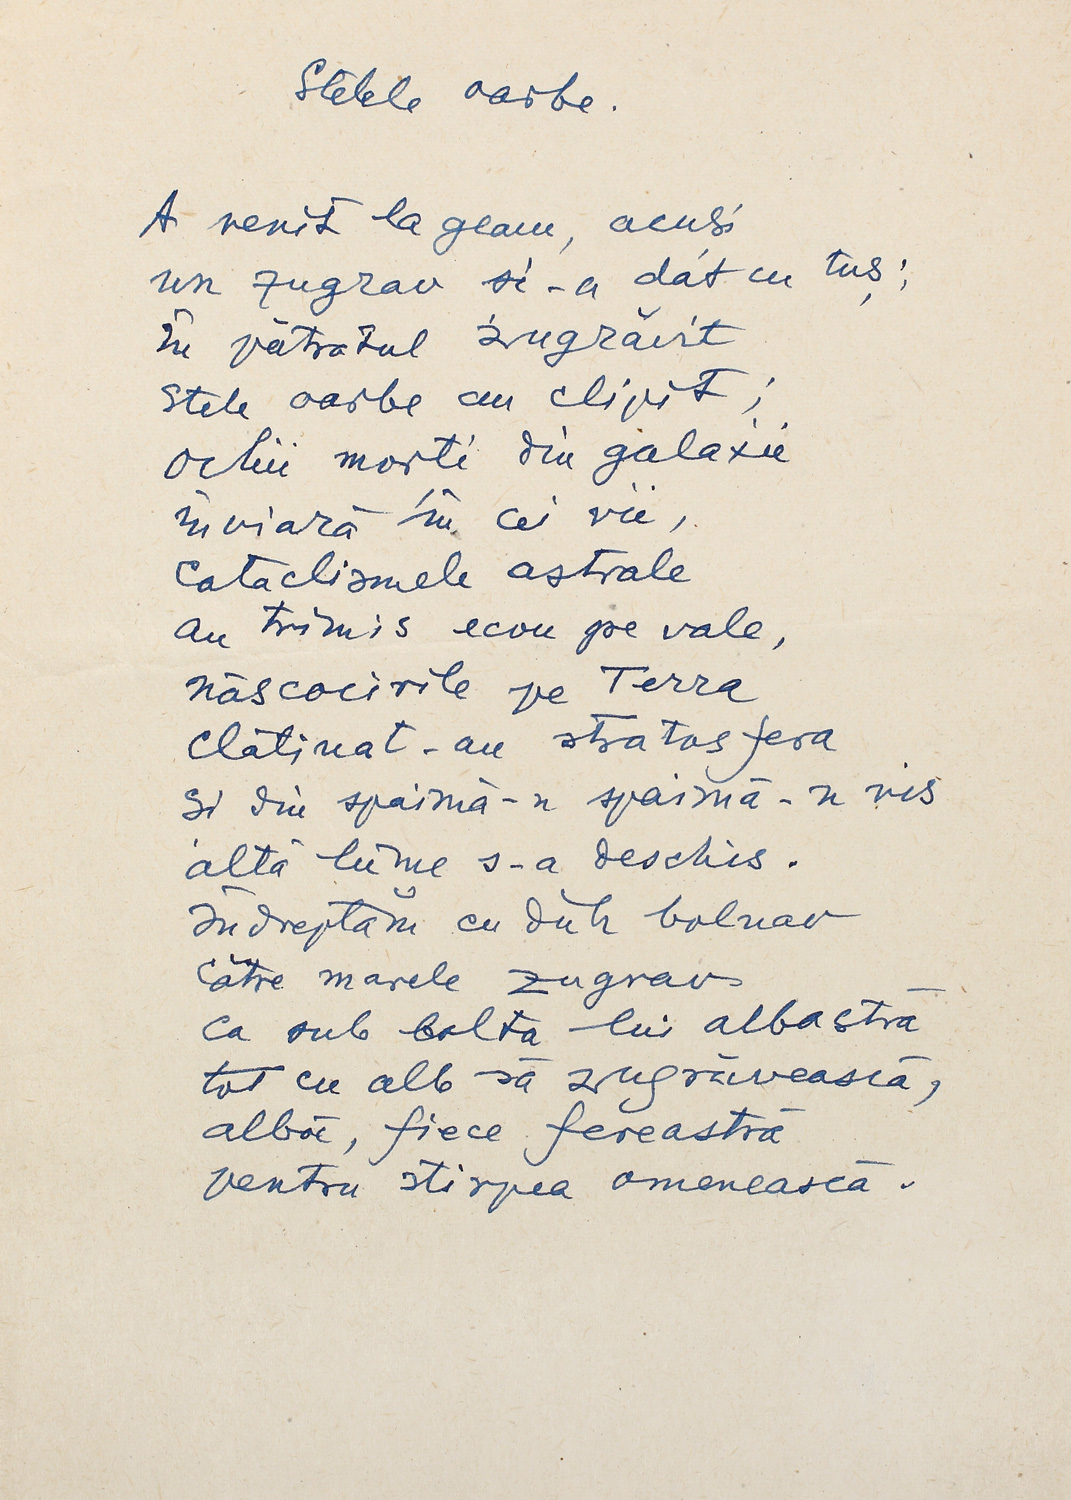 Stelele oarbe.
A venit la geam, acuși
un zugrav și-a dat cu tuș;
În pătratul zugrăvit
stele oarbe au clipit;
ochii morți din galaxii
înviară în cei vii,
Cataclismele astrale
au trimis ecou pe vale,
născocirile pe Terra
clătinat-au stratosfera
și din spaimă-n spaimă-n vis
altă lume s-a deschis.
Îndreptăm cu duh bolnav
către marele zugrav
ca sub bolta lui albastră
tot cu alb să zugrăvească,
albă, fiece fereastră
pentru stirpea omenească.